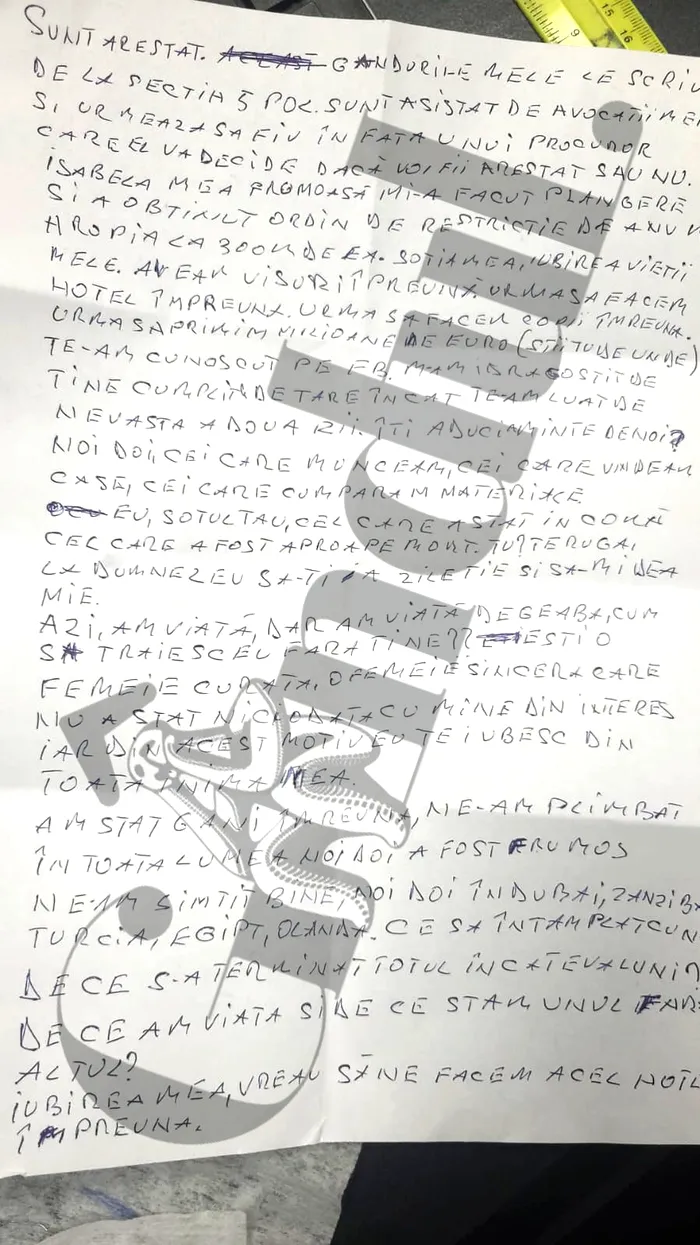 SUNT ARESTAT. GANDURILE MELE LE SCRIU
DE LA SECTIA 5 POL. SUNT ASISTAT DE AVOCATII MEI
SI URMEAZA SA FIU ÎN FATA UNUI PROCUROR
CARE EL VA DECIDE DACĂ VOI FII ARESTAT SAU NU.
ISABELA MEA FRUMOASĂ MI-A FACUT PLANGERE
SI A OBTINUT ORDIN DE RESTRICTIE DE A NU M
APROPIA LA 300M DE EA. SOTIA MEA, IUBIREA VIETII
MELE. AVEAM VISURI ÎPREUNĂ URMA SA FACEM
HOTEL ÎMPREUNA. URMA SA FACEM COPII ÎMPREUNA.
URMA SA PRIMIM MILIOANE DE EURO (STII TU DE UNDE)
TE-AM CUNOSCUT PE FB. M-AM IDRAGOSTIT DE
TINE CUMPLIT DE TARE ÎNCAT TE-AM LUAT DE
NEVASTA A DOUA ZII. ÎTI ADUCI AMINTE DE NOI?
NOI DOI, CEI CARE MUNCEAM, CEI CARE VINDEAM
CASE, CEI CARE CUMPARAM MATERIALE
EU, SOTUL TAU, CEL CARE A STAT IN COMĂ
CEL CARE A FOST APROAPE MORT. TU? TE RUGAI
LA DUMNEZEU SA-TI IA ZILE TIE SI SA-MI DEA
MIE.
AZI, AM VIATĂ, DAR AM VIATĂ DEGEABA, CUM
SĂ TRAIESC EU FARA TINE?? ESTI O
FEMEIE CURATA, O FEMEIE SINCERA CARE
NU A STAT NICIODATA CU MINE DIN INTERES
IAR DIN ACEST MOTIV EU TE IUBESC DIN
TOATA INIMA MEA.
AM STAT 6 ANI ÎMPREUNA, NE-AM PLIMBAT
ÎN TOATA LUMEA NOI DOI A FOST FRUMOS
NE-AM SIMTIT BINE, NOI DOI ÎN DUBAI, ZANZIBA
TURCIA, EGIPT, OLANDA. CE SA ÎNTAMPLAT CU N
DE CE S-A TERMINAT TOTUL ÎN CATEVA LUNI?
DE CE AM VIATA SI DE CE STAM UNUL FAR
ALTUL?
IUBIREA MEA, VREAU SĂ NE FACEM ACEL HOTEL
ÎMPREUNA.
Gândul
9
15
16